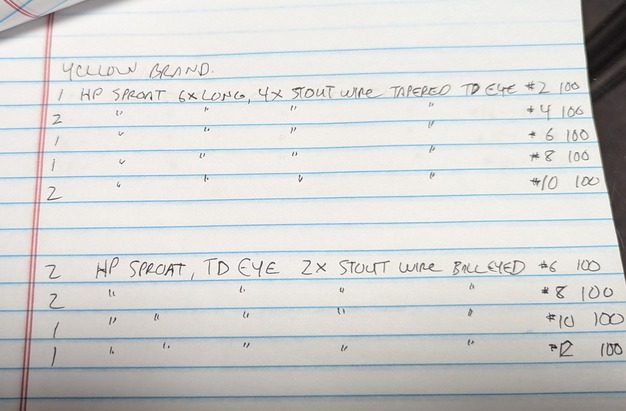 YELLOW BRAND.
1 HP SPROAT 6X LONG, 4X STOUT WIRE TAPERED TD EYE #2 100
2 " " " " #4 100
1 " " " " #6 100
1 " " " " #8 100
2 " " " " #10 100
2 HP SPROAT, TD EYE 2X STOUT WIRE BALLEYED #6 100
2 " " " " #8 100
1 " " " " " #10 100
1 " " " " " #12 100